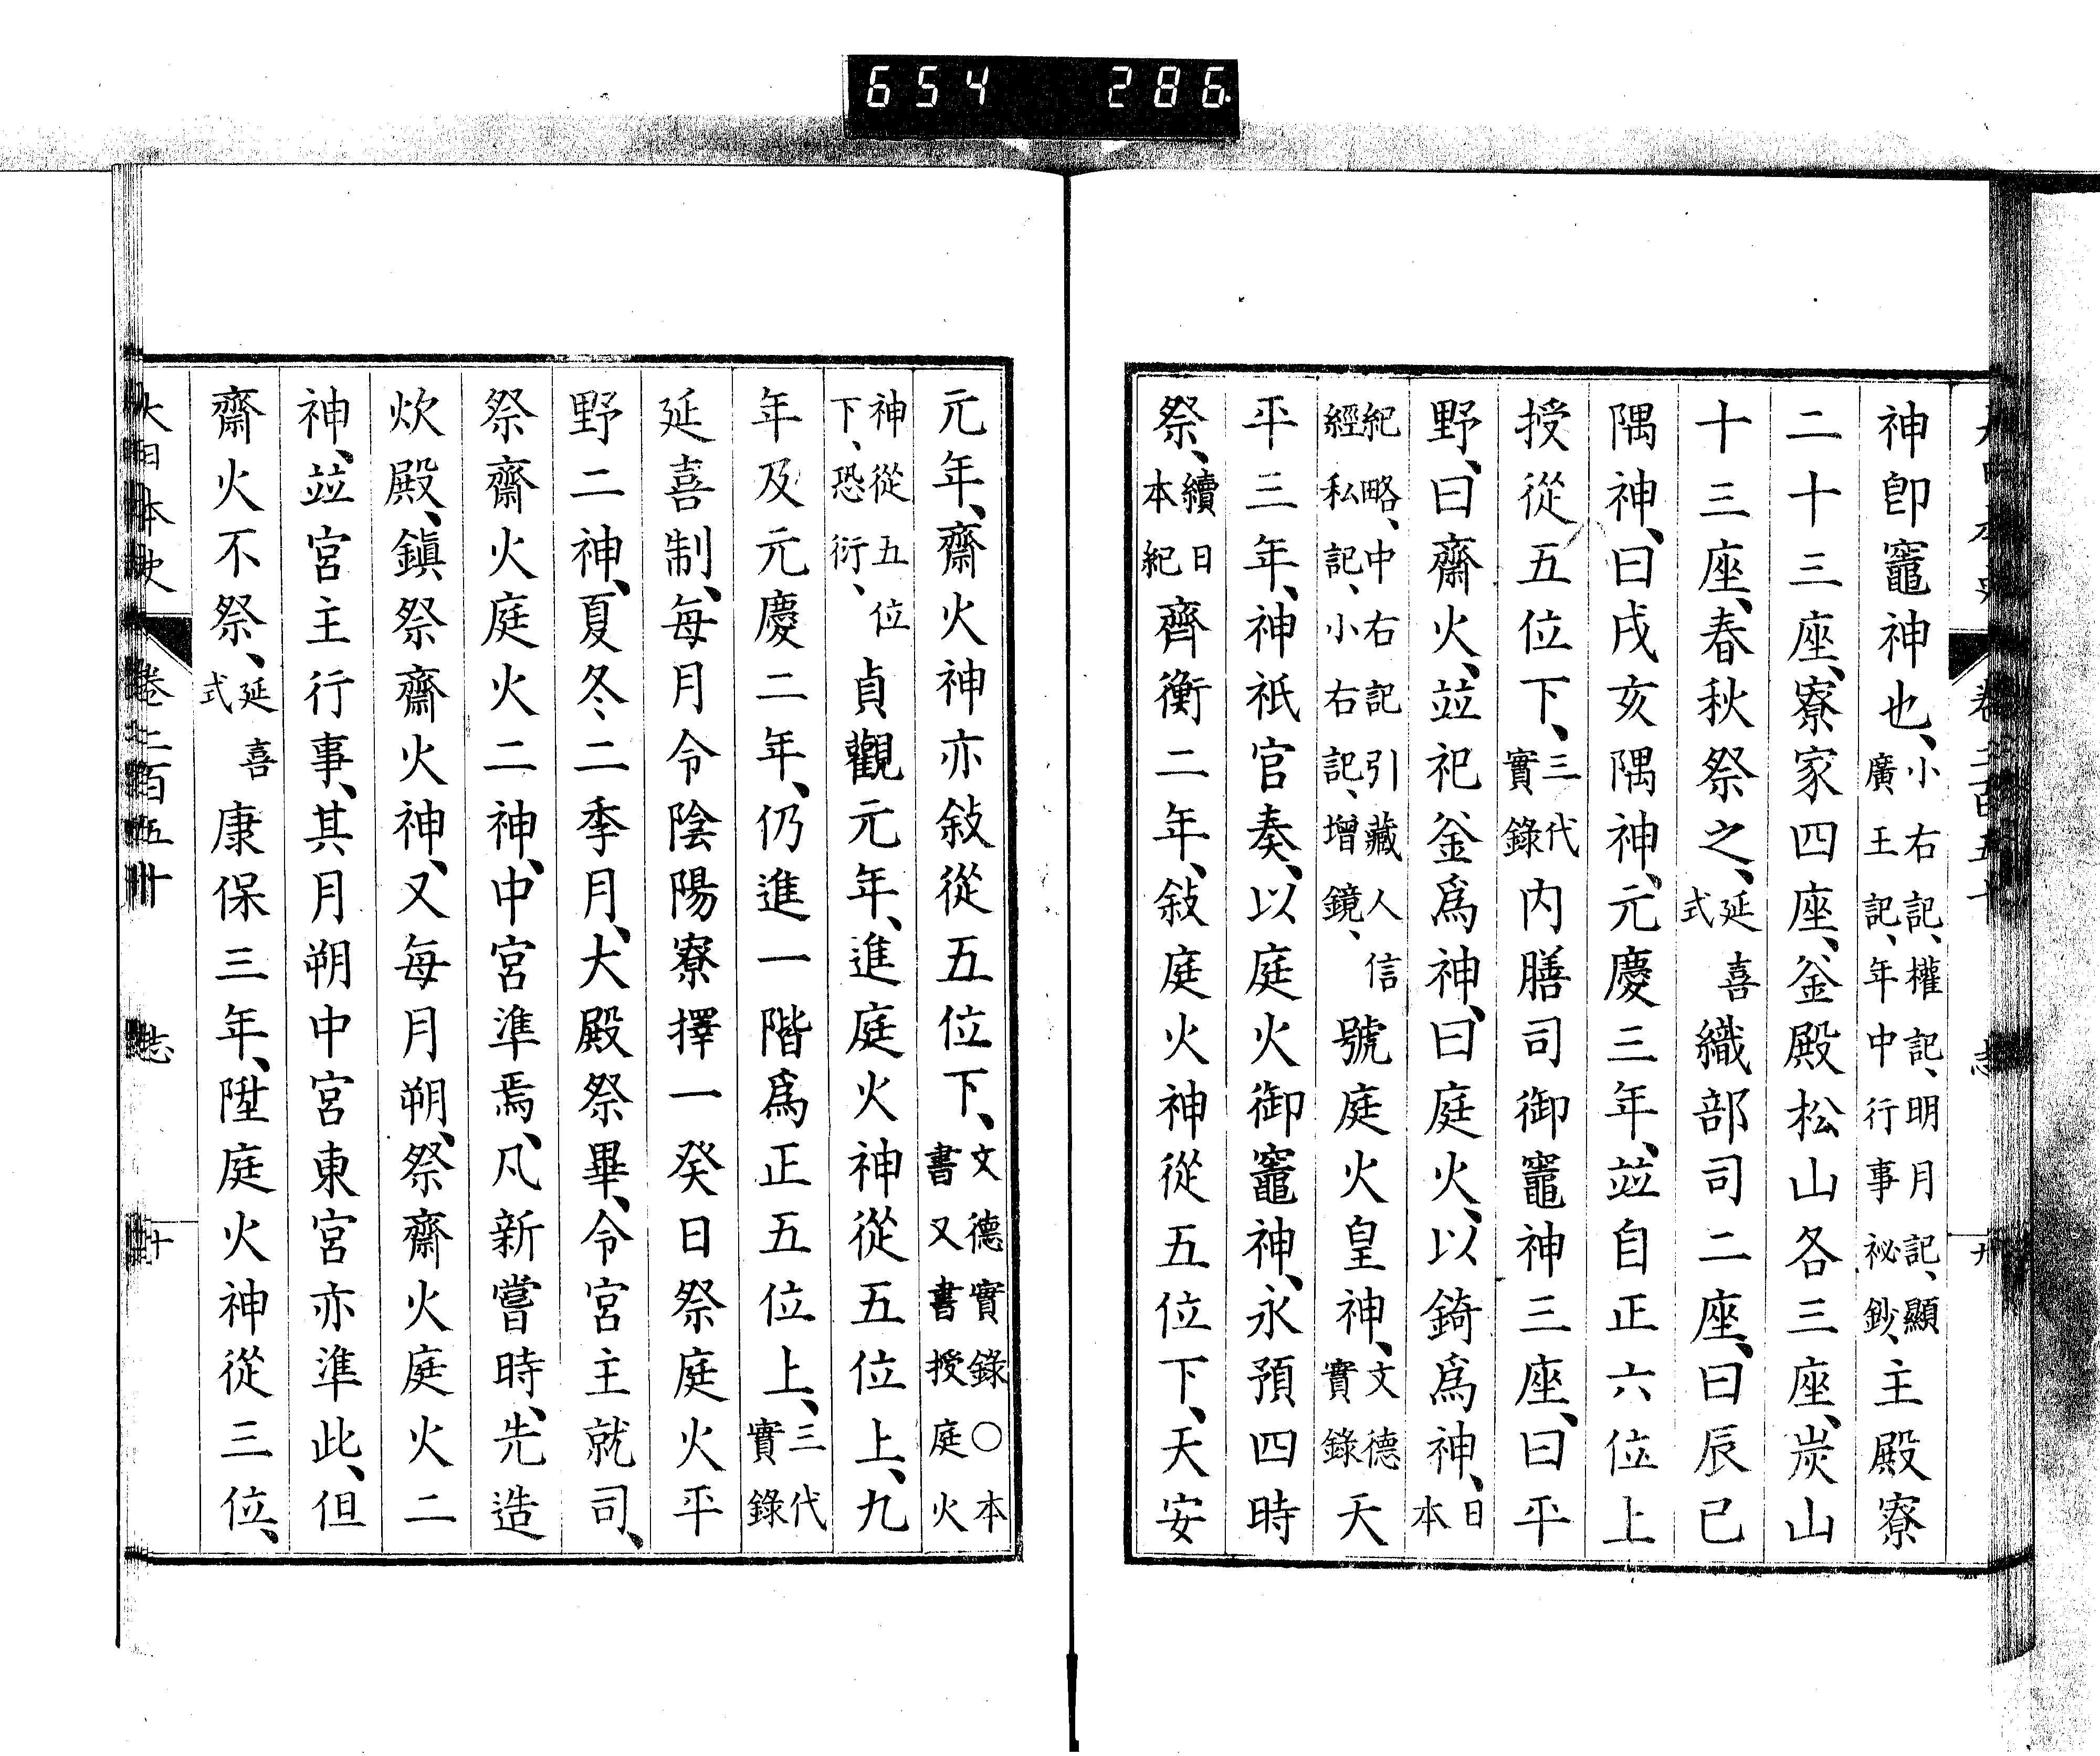 654 286
神卽竈神也、小右記、權記、明月記、顯廣王記、年中行事祕鈔、主殿寮
二十三座、寮家四座、釜殿松山各三座、炭山
十三座、春秋祭之、延喜式織部司二座、曰辰巳
隅神、曰戌亥隅神、元慶三年、竝自正六位上
授從五位下、三代實錄内膳司御竈神三座、曰平
野、曰齋火、竝祀釜爲神、曰庭火、以錡爲神、日本
紀略、中右記引藏人信經私記、小右記、增鏡、號庭火皇神、文德實錄天
平三年、神祇官奏、以庭火御竈神、永預四時
祭、續日本紀齊衡二年、敍庭火神從五位下、天安
元年、齋火神亦敍從五位下、文德實錄○本書又書授庭火
神從五位下、恐衍、貞觀元年、進庭火神從五位上、九
年及元慶二年、仍進一階爲正五位上、三代實錄
延喜制、每月令陰陽寮擇一癸日祭庭火平
野二神、夏冬二季月、大殿祭畢、令宮主就司、
祭齋火庭火二神、中宮準焉、凡新嘗時、先造
炊殿、鎭祭齋火神、又每月朔、祭齋火庭火二
神、竝宮主行事、其月朔中宮東宮亦準此、但
齋火不祭、延喜式康保三年、陞庭火神從三位、
大日本史 卷二百五十 志 十